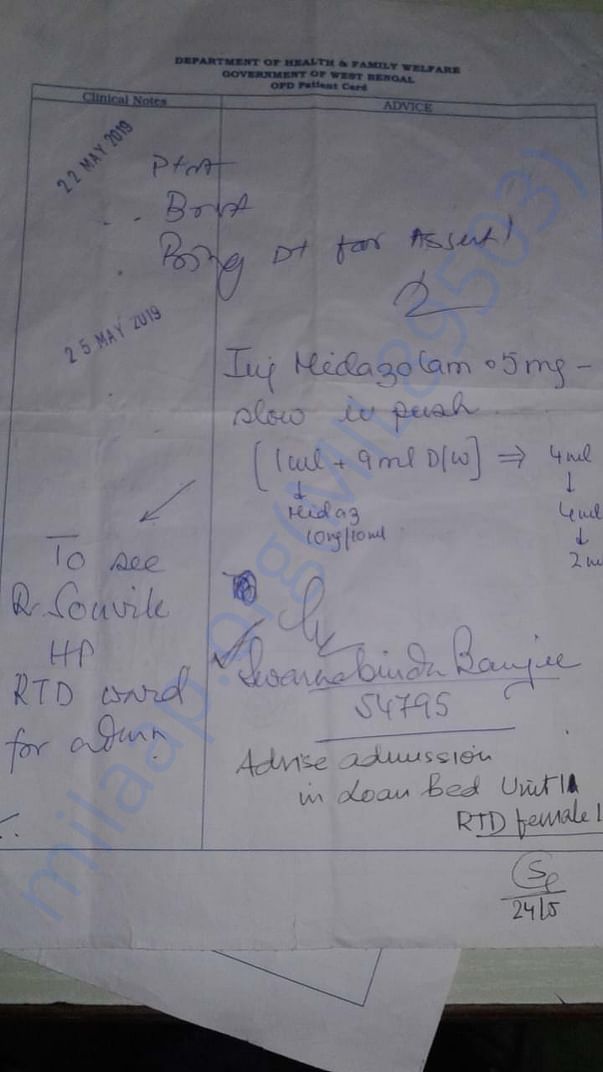 DEPARTMENT OF HEALTH & FAMILY WELFARE
GOVERNMENT OF WEST BENGAL
OPD Patient Card
Clinical Notes
ADVICE
22 MAY 2019
for
25 MAY 2019
Inj Midazolam 05mg -
slow iv push
[1ml + 9ml D/W] ⇒ 4ml
↓
Midaz
10mg/10ml
↓
4ml
↓
2 m
To see
Dr. Souvik
HP
RTD ward
for admn
Banerjee
54795
Advise admission
in Loan Bed Unit 1A
RTD female 1
24/5
milaap.org(MIL89503)